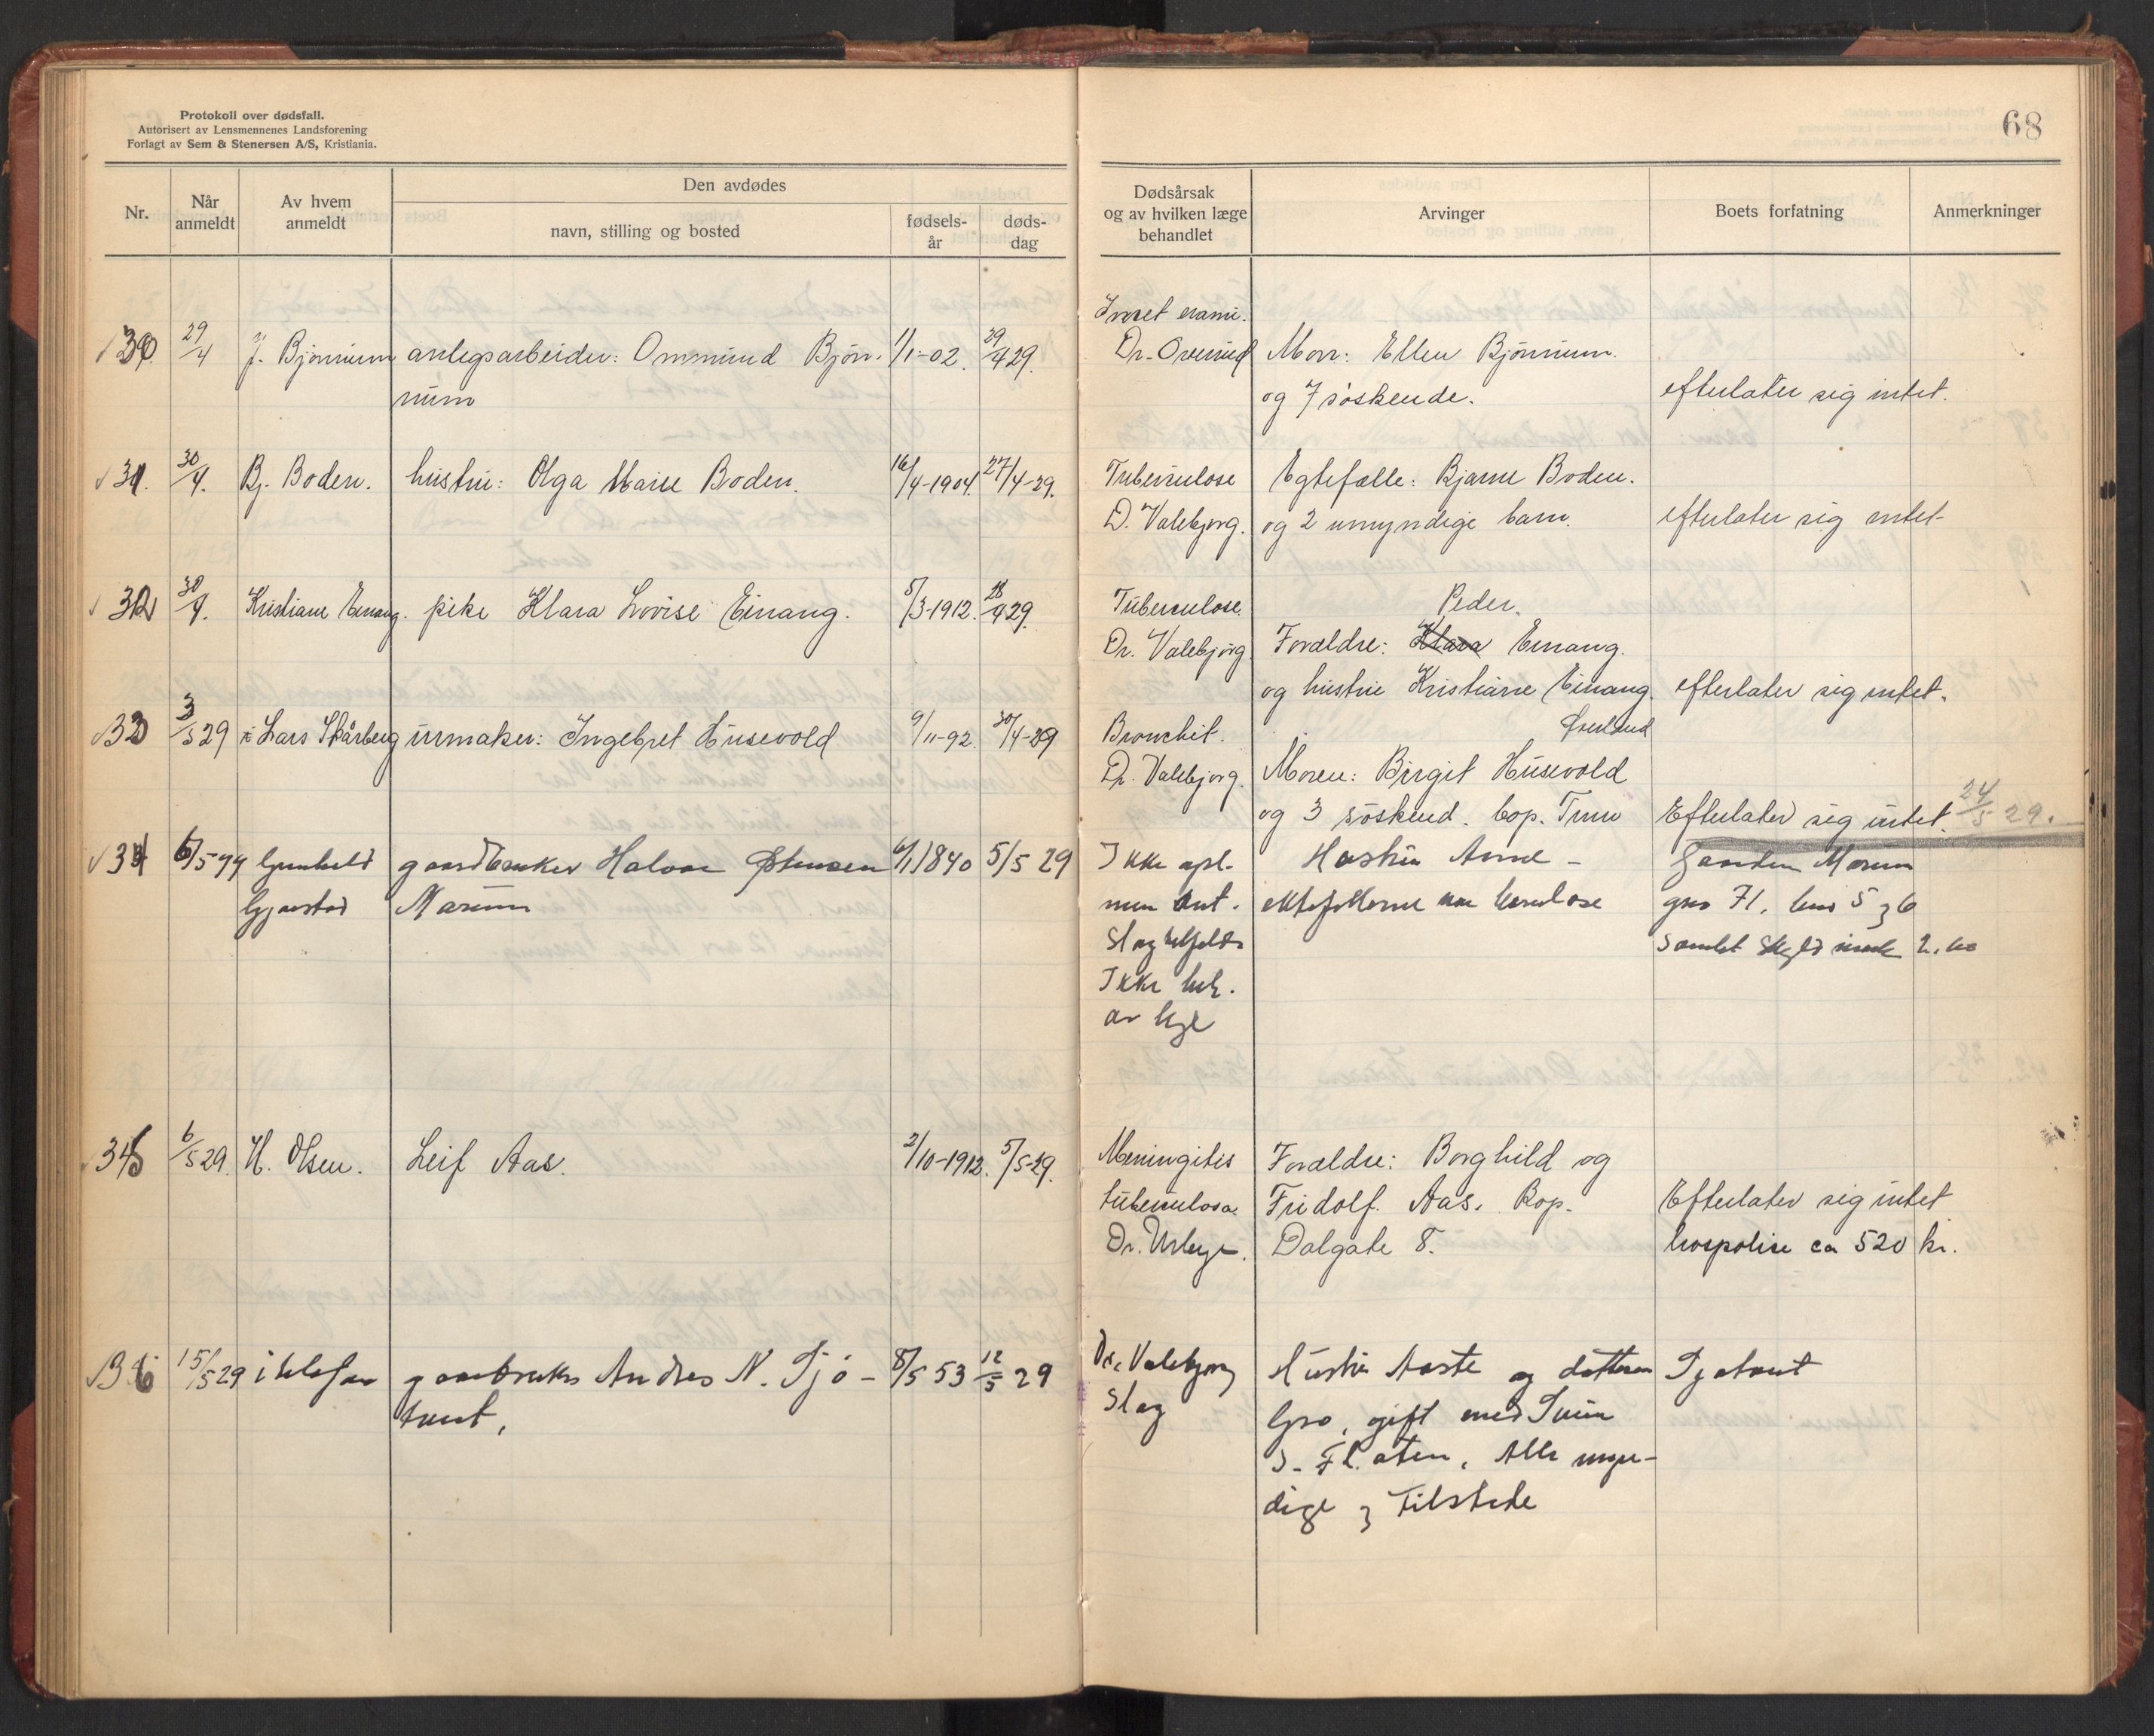 Protokoll over dødsfall.
Autorisert av Lensmennenes Landsforening
Forlagt av Sem & Stenersen A/S, Kristiania.
68
Nr.
Når anmeldt
Av hvem anmeldt
Den avdødes
navn, stilling og bosted
fødsels-år
døds-dag
Dødsårsak og av hvilken læge behandlet
Arvinger
Boets forfatning
Anmerkninger
30. 29/4 J. Bjørnum anlegsarbeider: Ommund Bjørn- 1/1-02. 29/4 29.
num
Dr. Overrud Mor: Ellen Bjørnum.
og 7 søskende. efterlater sig intet.
31. 30/4. Bj. Boden. hustru: Olga Marie Boden. 16/4-1904. 27/4-29.
Tuberculose Egtefælle: Bjarne Boden.
D. Valebjørg. og 2 umyndige barn. efterlater sig intet-
32 30/4. Kristiane Einang. pike Klara Lovise Einang. 5/3-1912. 28/4 29.
Tuberculose. Peder.
Dr. Valebjørg Forældre: Klara Einang.
og hustru Kristiane Einang. efterlater sig intet.
33 3/5 29 Lars Skårberg urmaker: Ingebret Husevold 9/11-92. 30/4-29
Bronchit.
Dr. Valebjørg. Moren: Birgit Husevold
og 3 søskend. bop. Efterlater sig intet. 24/5 29.
34 6/5 Gunhild gaardbruker Halvor Østensen 1840 5/5 29
Gjarstad Marum
Ikke opl. Hustru Anne - Gaarden Marum
men Ant. ektefellerne barnløse gno 71, bno 5 og 6
Slagtilfelde samlet skyld mark 2.
Ikke beh.
av lege
35 6/5 29. H. Olsen. Leif Aas. 2/10-1912. 5/5-29.
Meningitis Forældre: Borghild og
tuberculosa. Fridolf Aas. Bop. Efterlater sig intet
Dr. Dalgate 8. livspolise ca 520 kr.
36 15/5 29 i telefon gaardbruker Andres N. Tjø- 8/5 53 12/5 29
tunt,
Dr. Valebjørg Hustru Aaste og datteren
Slag Gro, gift med
S. Flaten, Alle myn-
dige og tilstede